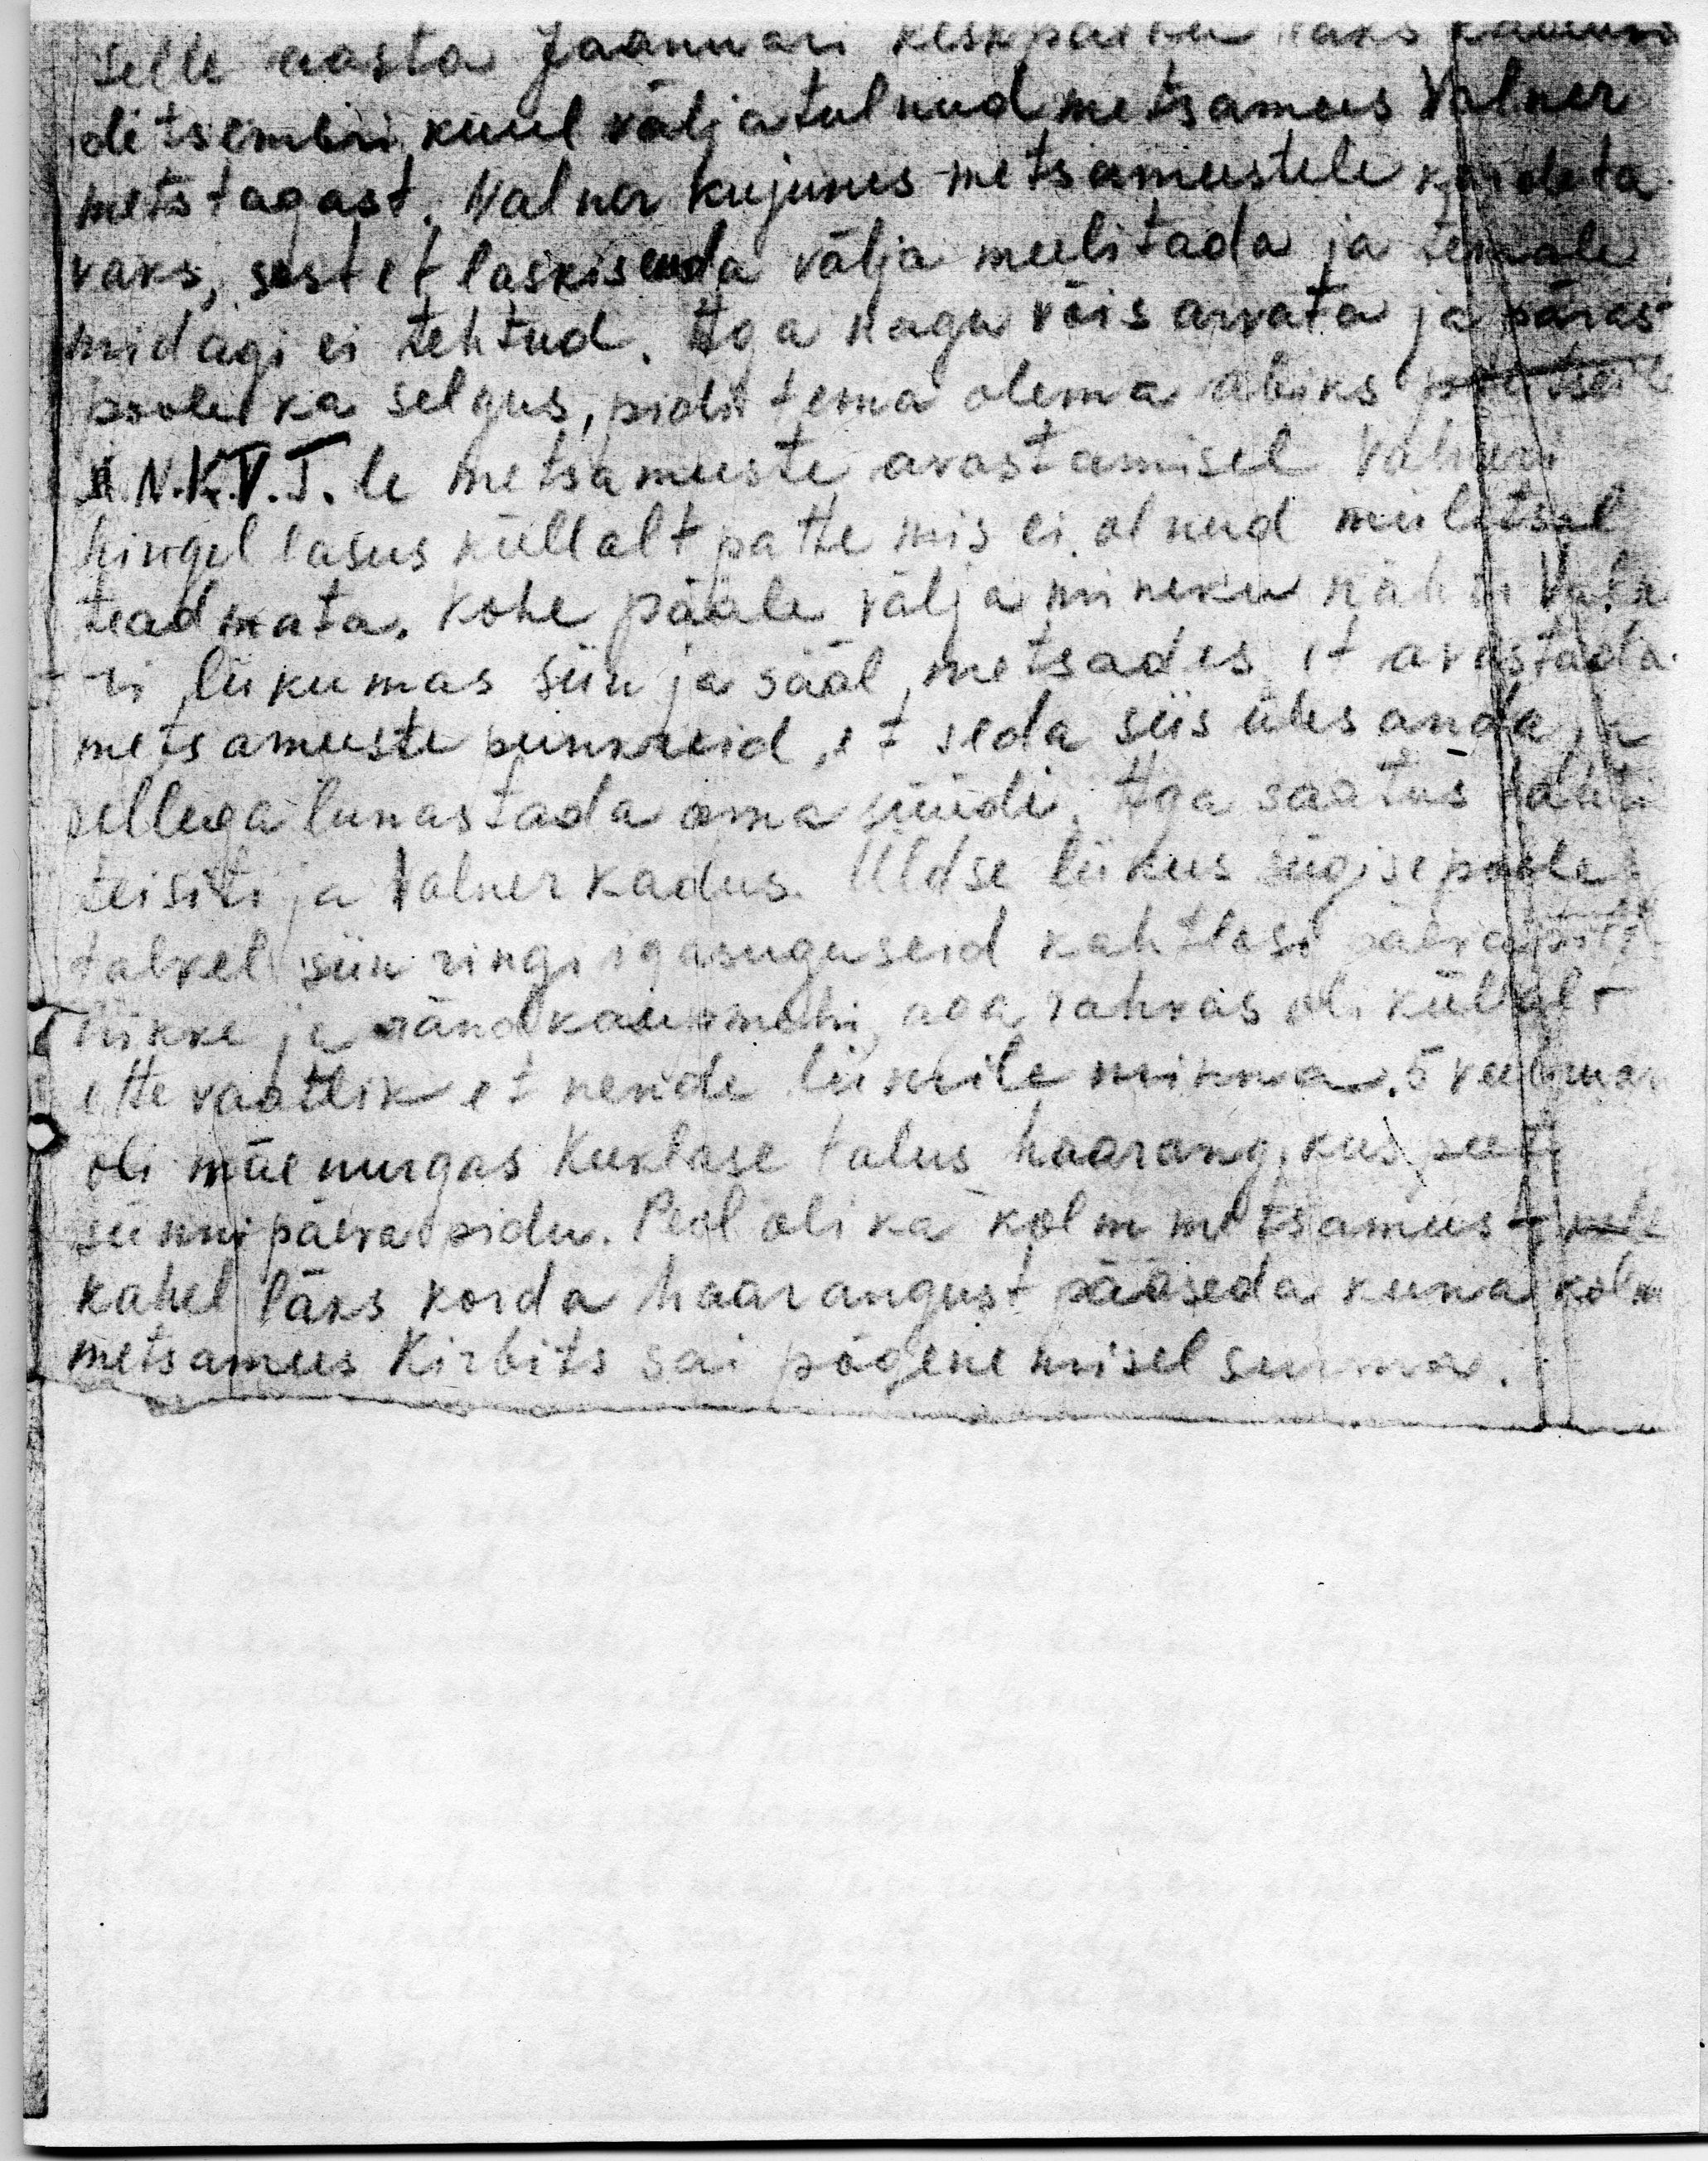 Selle aasta Jaanuari keskpaiku läks kaduma
ditsembri kuul väljatulnud metsamees Valner
metstagast. Valner kujunes metsameestele kardeta
vaks, sest et laskis enda välja meelitada ja temale
midagi ei tehtud. Aga nagu võis arvata ja päras
poole ka selgus, pidi tema olema abiks
N.K.V.J. le metsameeste avastamisel Valneri
hingel lasus küllalt patte mis ei olnud miilitsal
teadmata. Kohe pääle välja mineku nähti Valn
ri liikumas siin ja sääl, metsades et avastada
metsameeste punkreid, et seda siis üles anda, ja
sellega lunastada oma süüdi. Aga saatus tahtis
teisiti ja Valner kadus. Üldse liikus sügisepoole
talvel siin ringi igasuguseid kahtlasi
liikke ja rändkaupmehi, aga rahvas oli küllalt
ettevaatlik et nende liimile minna. 5 veebruar
oli mäe nurgas Kuklase talus haarang, kus peeti
sünnipäeva pidu. Peol oli ka kolm metsameest
kahel läks korda haarangust pääseda kuna kolm
metsamees Kirbits sai põgenemisel surma.